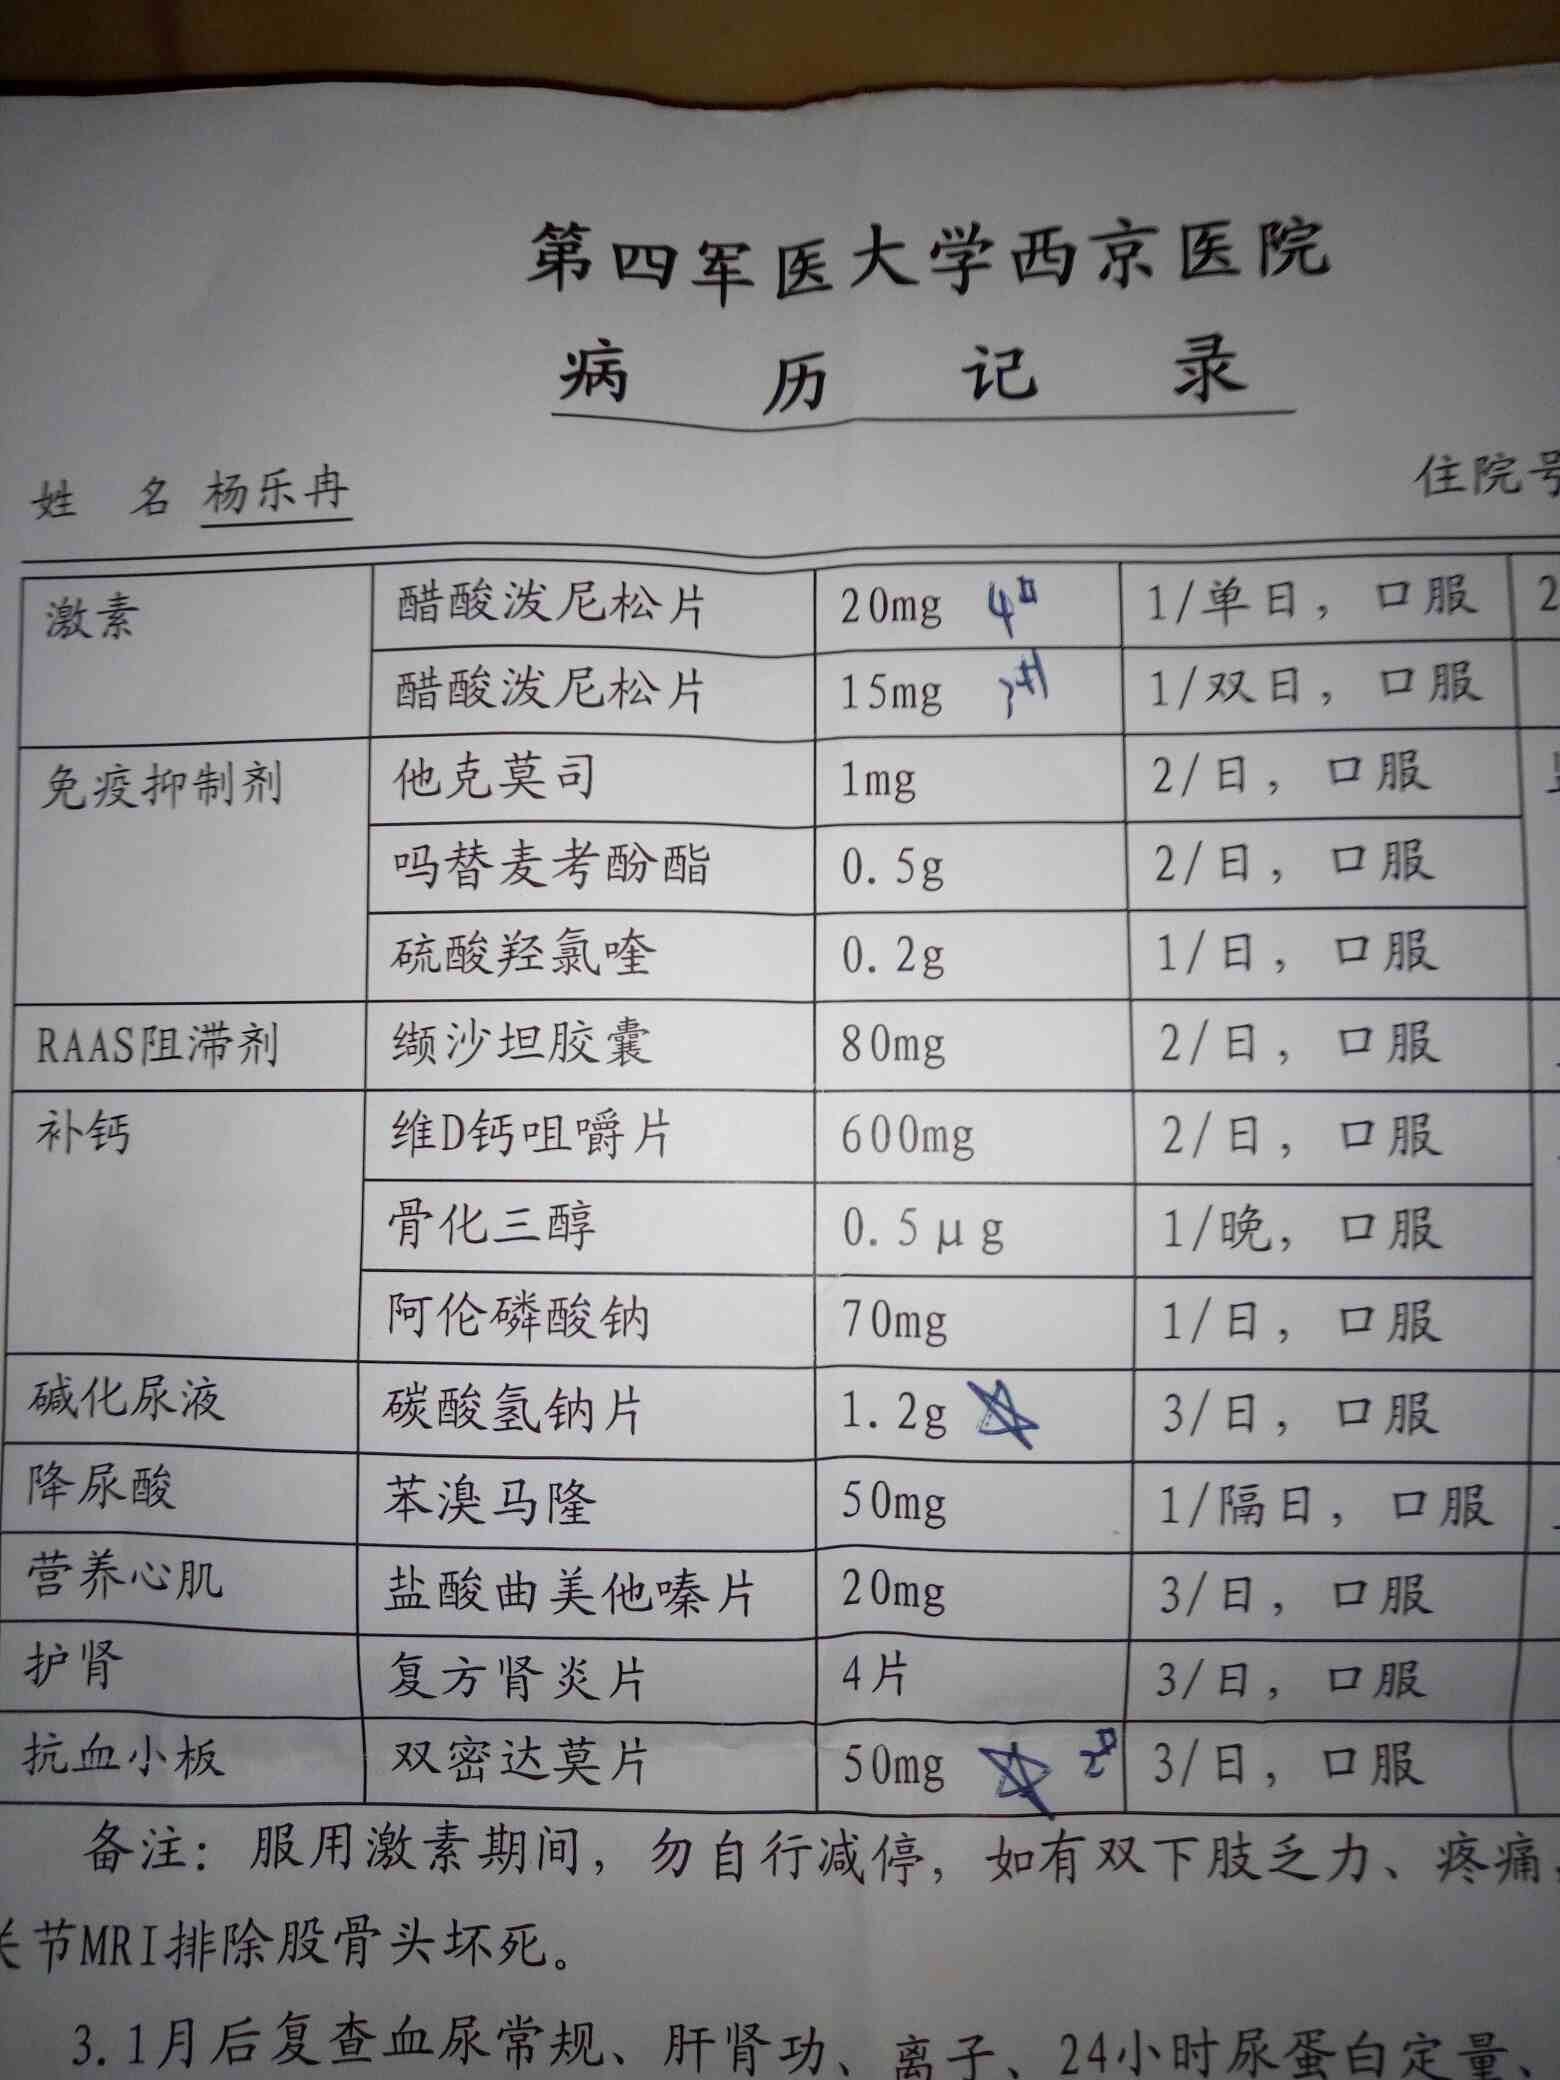 第四军医大学西京医院
病历记录
姓 名 杨乐冉 住院号
激素 醋酸泼尼松片 20mg 4口 1/单日，口服 2
醋酸泼尼松片 15mg 1/双日，口服
免疫抑制剂 他克莫司 1mg 2/日，口服
吗替麦考酚酯 0.5g 2/日，口服
硫酸羟氯喹 0.2g 1/日，口服
RAAS阻滞剂 缬沙坦胶囊 80mg 2/日，口服
补钙 维D钙咀嚼片 600mg 2/日，口服
骨化三醇 0.5μg 1/晚，口服
阿伦磷酸钠 70mg 1/日，口服
碱化尿液 碳酸氢钠片 1.2g 3/日，口服
降尿酸 苯溴马隆 50mg 1/隔日，口服
营养心肌 盐酸曲美他嗪片 20mg 3/日，口服
护肾 复方肾炎片 4片 3/日，口服
抗血小板 双密达莫片 50mg 2口 3/日，口服
备注：服用激素期间，勿自行减停，如有双下肢乏力、疼痛
关节MRI排除股骨头坏死。
3.1月后复查血尿常规、肝肾功、离子、24小时尿蛋白定量、